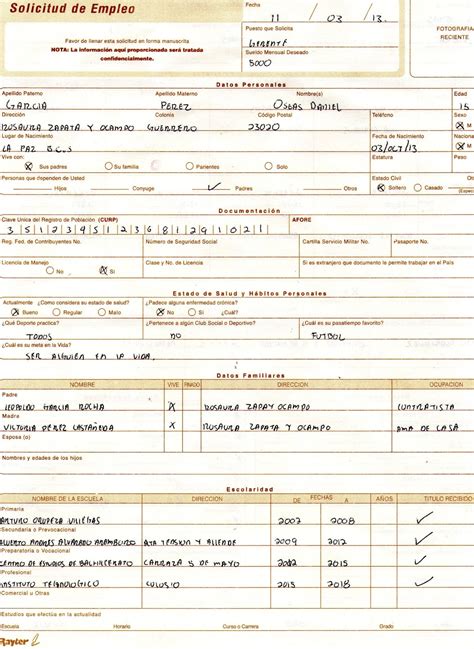 Solicitud de Empleo
Fecha
11 / 03 / 13.
Puesto que Solicita
GERENTE
Favor de llenar esta solicitud en forma manuscrita
NOTA: La información aquí proporcionada será tratada
confidencialmente.
Sueldo Mensual Deseado
5000
FOTOGRAFIA
RECIENTE
Datos Personales
Apellido Paterno Apellido Materno Nombre(s) Edad
GARCIA PEREZ OSEAS DANIEL 15
Dirección Colonia Código Postal Teléfono Sexo
ROSAURA ZAPATA Y OCAMPO GUERRERO 23020 M
Lugar de Nacimiento Fecha de Nacimiento Naciona
LA PAZ B.C.S 03/OCT/13
Vive con: Estatura Peso
Sus padres Su familia Parientes Solo
Personas que dependen de Usted Estado Civil
Hijos Conyuge Padres Otros Soltero Casado
Documentación
Clave Unica del Registro de Población (CURP) AFORE
3 5 1 2 3 4 5 1 2 3 6 8 1 2 9 1 0 2 1
Reg. Fed. de Contribuyentes No. Número de Seguridad Social Cartilla Servicio Militar No. Pasaporte No.
Licencia de Manejo Clase y No. de Licencia Si es extranjero que documento le permite trabajar en el País
No Si
Estado de Salud y Hábitos Personales
Actualmente ¿Como considera su estado de salud? ¿Padece alguna enfermedad crónica?
Bueno Regular Malo No Si ¿Cuál?
¿Qué Deporte practica? ¿Pertenece a algún Club Social o Deportivo? ¿Cuál es su pasatiempo favorito?
TODOS NO FUTBOL
¿Cuál es su meta en la Vida?
SER ALGUIEN EN LA VIDA.
Datos Familiares
NOMBRE VIVE FINADO DIRECCION OCUPACION
Padre
LEOPOLDO GARCIA ROCHA X ROSAURA ZAPAY OCAMPO CONTRATISTA
Madre
VICTORIA PEREZ CASTAÑEDA X ROSAURA ZAPATA Y OCAMPO AMA DE CASA
Esposa (o)
Nombres y edades de los hijos
Escolaridad
NOMBRE DE LA ESCUELA DIRECCION DE FECHAS A AÑOS TITULO RECIBIDO
Primaria
ARTURO OROPEZA VILLEGAS 2002 2008
Secundaria o Prevocacional
ALBERTO ANDRES ALVARADO ARAMBURO Y ALLENDE 2009 2012
Preparatoria o Vocacional
CENTRO DE ESTUDIOS DE BACHILLERATO 5 DE MAYO 2012 2015
Profesional
INSTITUTO TECNOLOGICO COLOSIO 2015 2018
Comercial u Otras
Estudios que efectúa en la actualidad
Escuela Horario Curso o Carrera Grado
Rayter